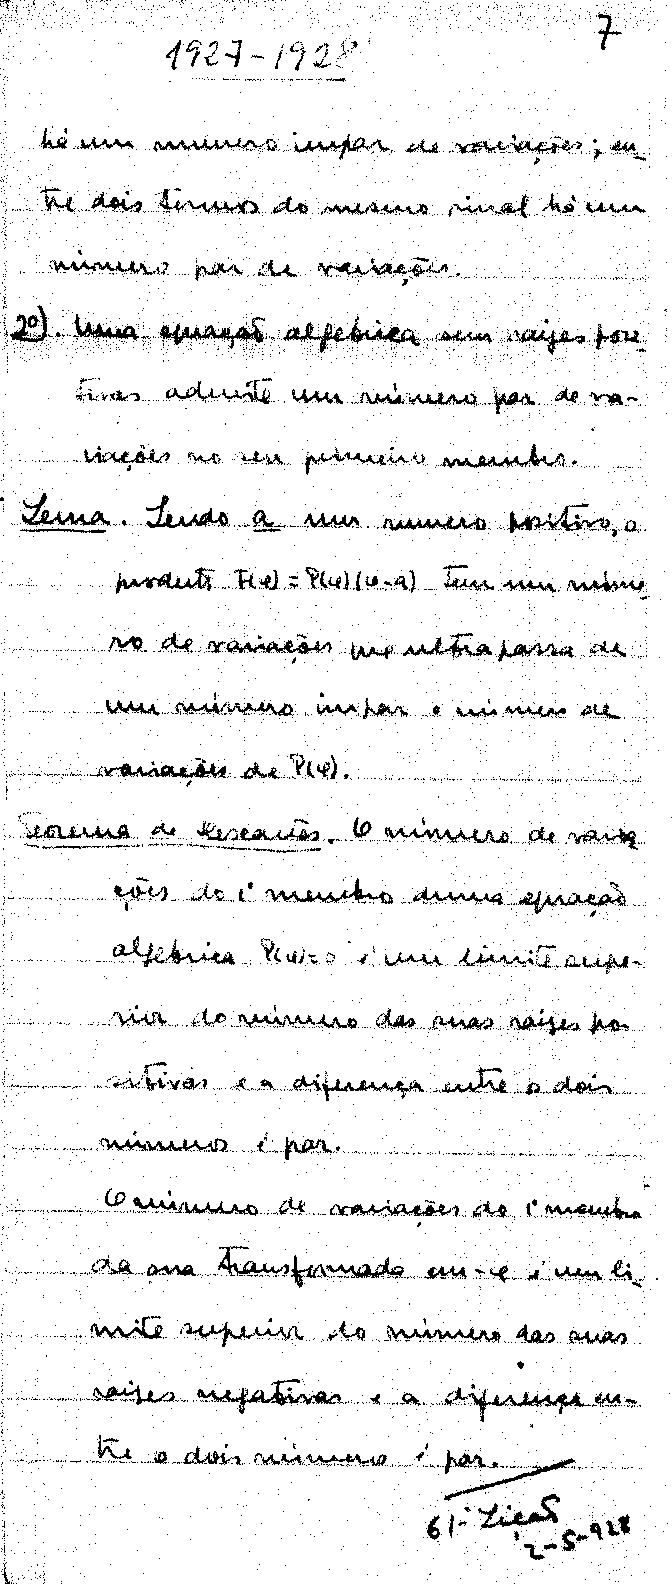 7
1927-1928
há um número impar de variações; en-
tre dois termos do mesmo sinal há um
número par de variações.
2º). Uma equação algébrica sem raizes posi-
tivas admite um número par de va-
riações no seu primeiro membro.
Lema. Sendo a um numero positivo, o
produto F(x) = P(x)(x-a) tem um núme-
ro de variações que ultrapassa de
um número impar o número de
variações de P(x).
Teorema de Descartes. O número de varia-
ções do 1º membro duma equação
algébrica P(x)=0 é um limite supe-
rior do número das suas raizes po-
sitivas e a diferença entre os dois
números é par.
O número de variações do 1º membro
da sua transformada em -x é um li-
mite superior do número das suas
raizes negativas e a diferença en-
tre os dois número é par.
61ª Lição
2-5-928